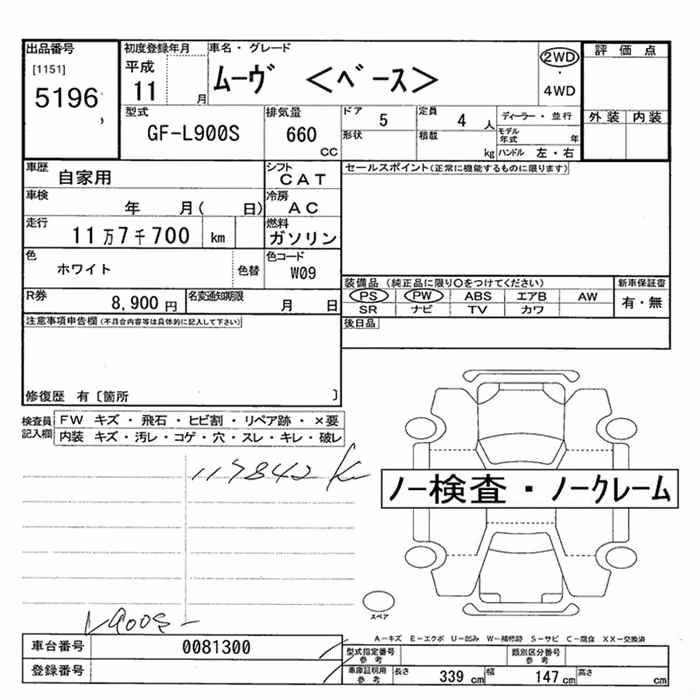 出品番号
[1151]
5196
初度登録年月
平成
11 月
車名・グレード
ムーヴ <ベース>
2WD
・
4WD
評価点
外装 内装
型式
GF-L900S
排気量
660
CC
ドア
5
形状
定員
4 人
積載
kg
ディーラー・並行
モデル年式 年
ハンドル 左・右
車歴
自家用
シフト
CAT
車検
年 月( 日)
冷房
AC
走行
11万7千700 km
燃料
ガソリン
色
ホワイト
色替
色コード
W09
R券
8,900 円
名変通知期限
月 日
セールスポイント(正常に機能するものに限ります)
装備品 (純正品に限り○をつけてください)
PS PW ABS エアB AW
SR ナビ TV カワ
新車保証書
有・無
後日品
注意事項申告欄(不具合内容等は具体的に記入して下さい)
修復歴 有〔箇所 〕
検査員記入欄
FW キズ・飛石・ヒビ割・リペア跡・×要
内装 キズ・汚レ・コゲ・穴・スレ・キレ・破レ
117842 K
ノー検査・ノークレーム
スペア
L900S-
A-キズ E-エクボ U-凹み W-補修跡 S-サビ C-腐食 XX-交換済
車台番号
0081300
登録番号
型式指定番号
参考
類別区分番号
参考
車庫証明用
参考
長さ 339 cm
幅 147 cm
高さ cm